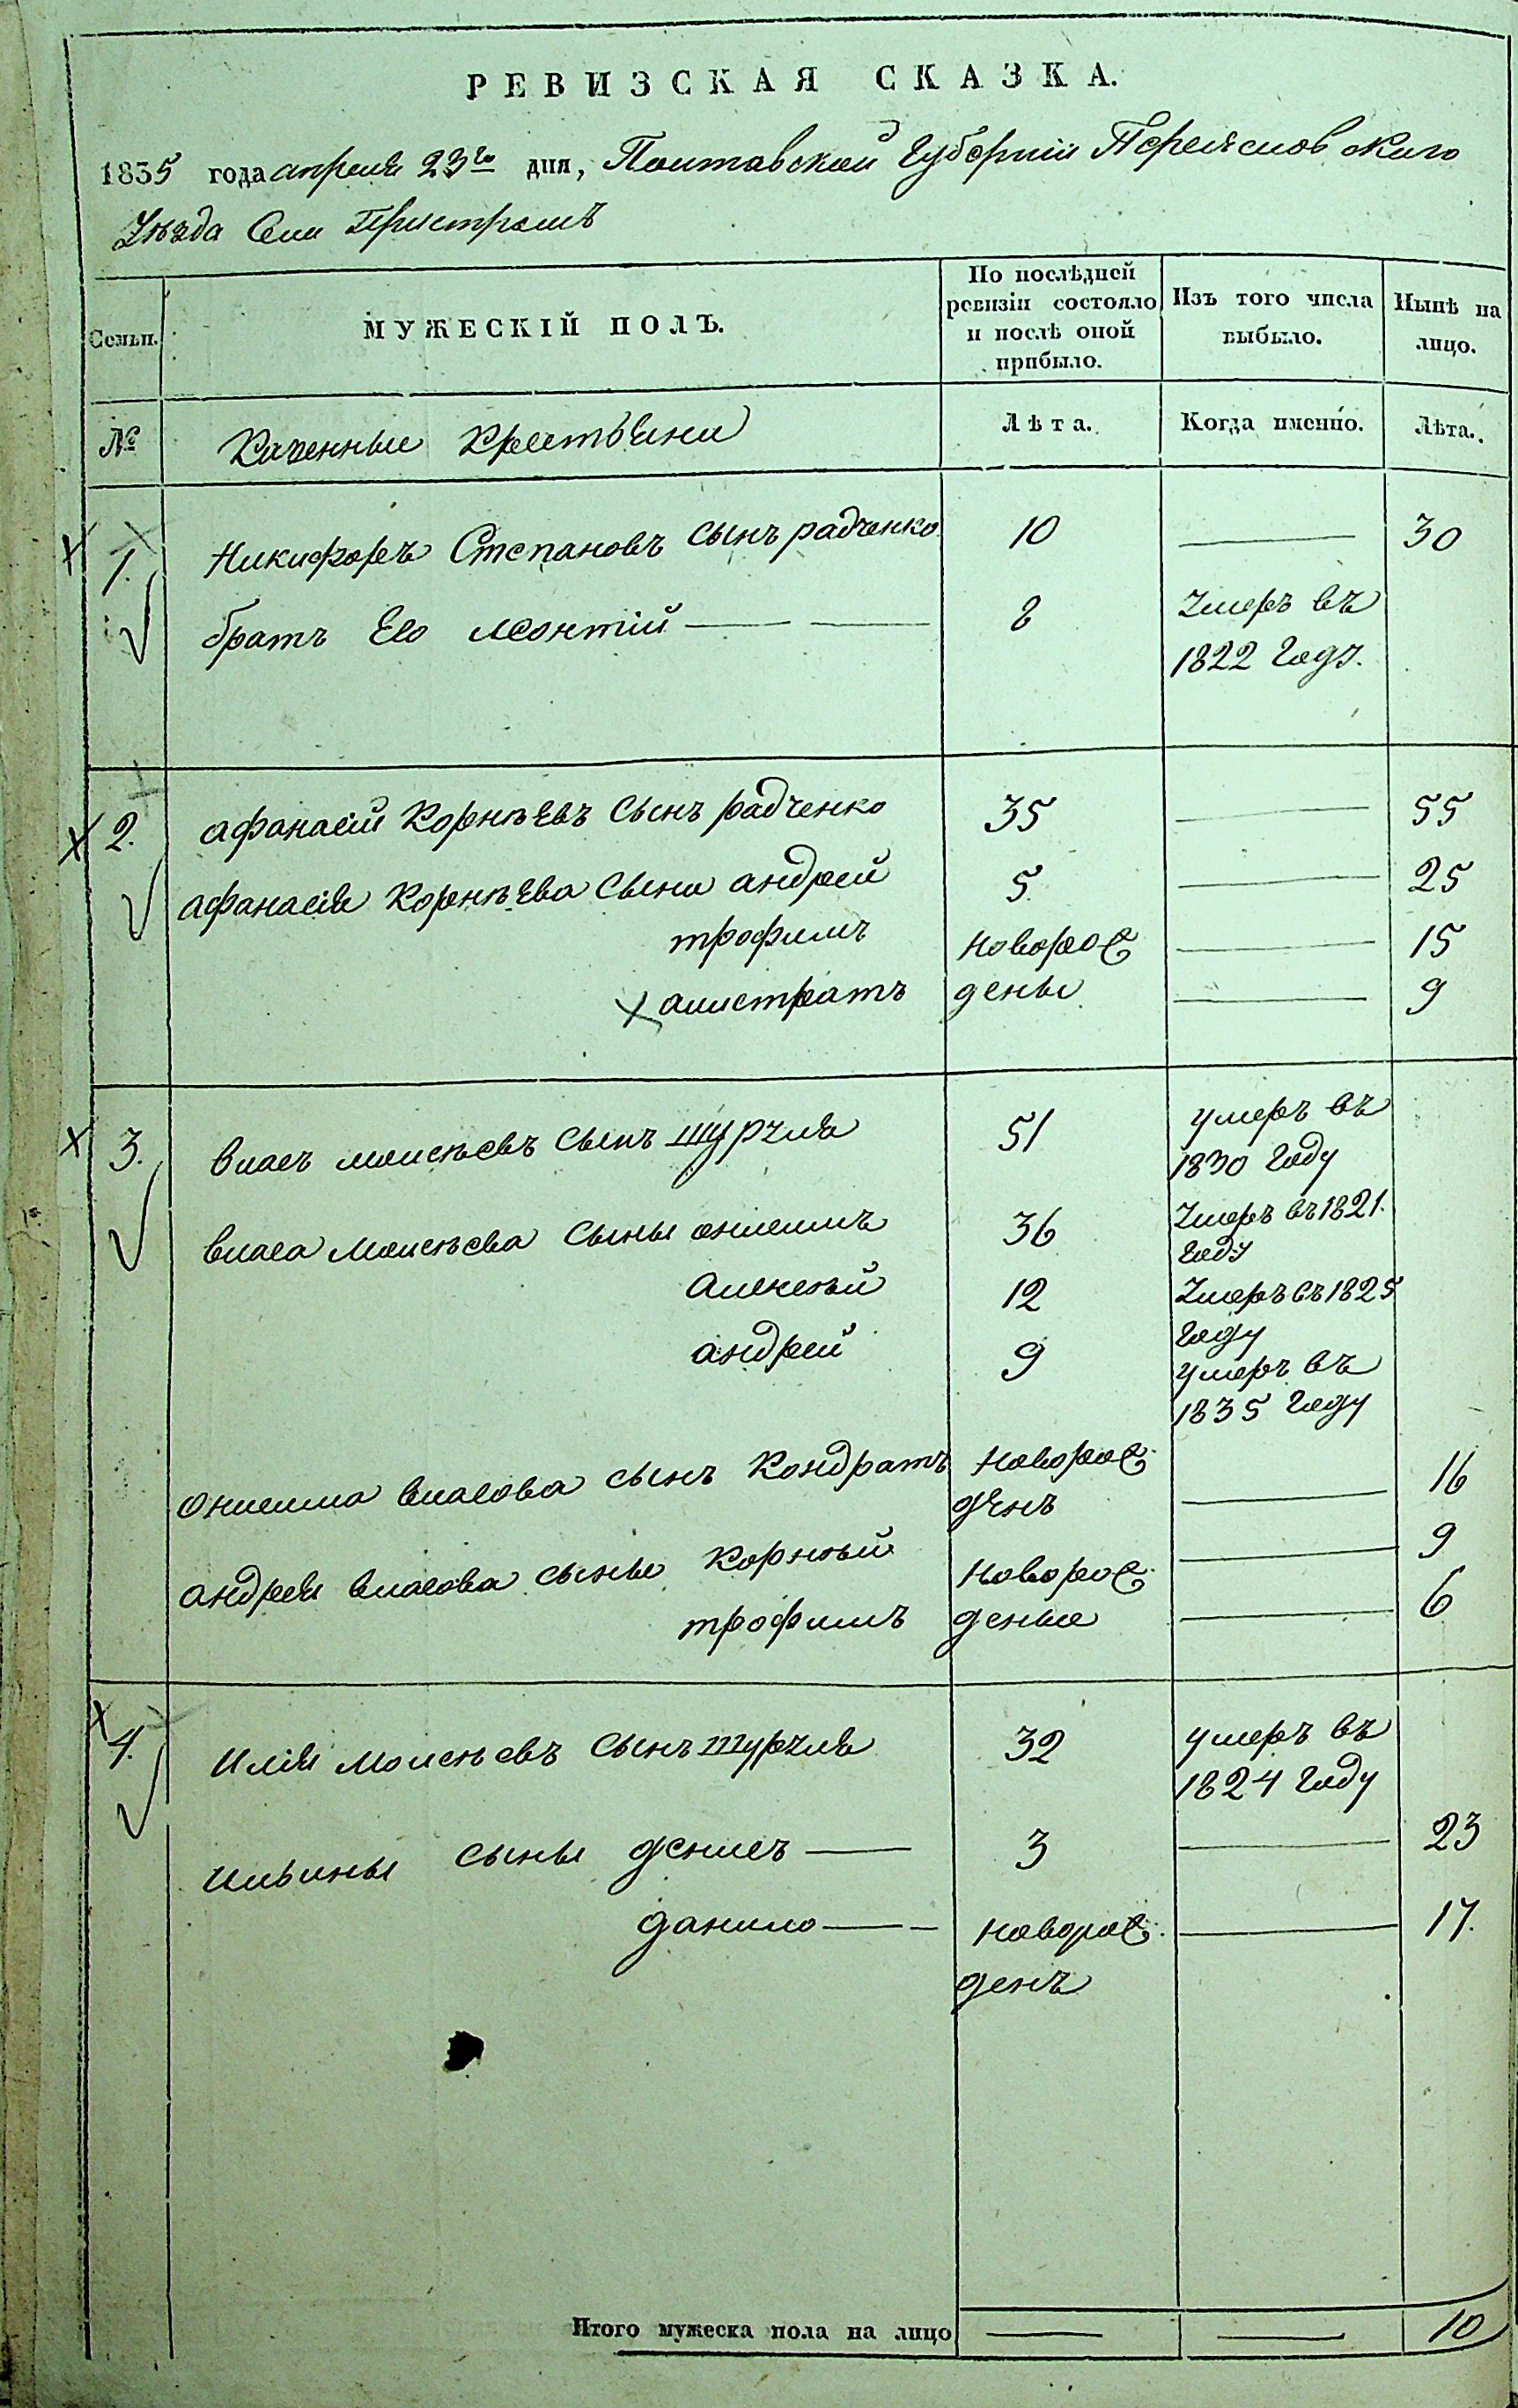 РЕВИЗСКАЯ СКАЗКА.
1835 года апреля 23го дня, Полтавской Губернии Переяслов ского
Уѣзда Села Пристромъ
Семьи.
МУЖЕСКІЙ ПОЛЪ.
По послѣдней ревизіи состояло и послѣ оной прибыло.
Изъ того числа выбыло.
Нынѣ на лицо.
№
Казенные Крестьяни
Лѣта.
Когда именно.
Лѣта.
1. Никифоръ Степановъ сынъ радченко 10 — 30
братъ Его леонтій — — 8 Умеръ въ
1822 Году.
2. афанасій Корнѣевъ Сынъ радченко 35 — 55
афанасія Корнѣева Сыны андрей 5. — 25
трофимъ новорож — 15
х алистратъ дены — 9
3. власъ моисѣевъ сынъ шурхля 51 умеръ въ
1830 Году
власа моисѣева Сыны онисимъ 36 Умеръ въ 1821.
Году
Алексѣй 12 Умеръ въ 1825
Году
андрей 9 умеръ въ
1835 Году
онисима власова сынъ Кондратъ новорож — 16
денъ
андрея власова сыны Корнѣй новорож — 9
трофимъ дены — 6
4. илія моисѣевъ сынъ шурхля 32 умеръ въ
1824 Году
ильины сыны денисъ — 3 — 23
данило — — новорож. — 17.
денъ
Итого мужеска пола на лицо — — 10